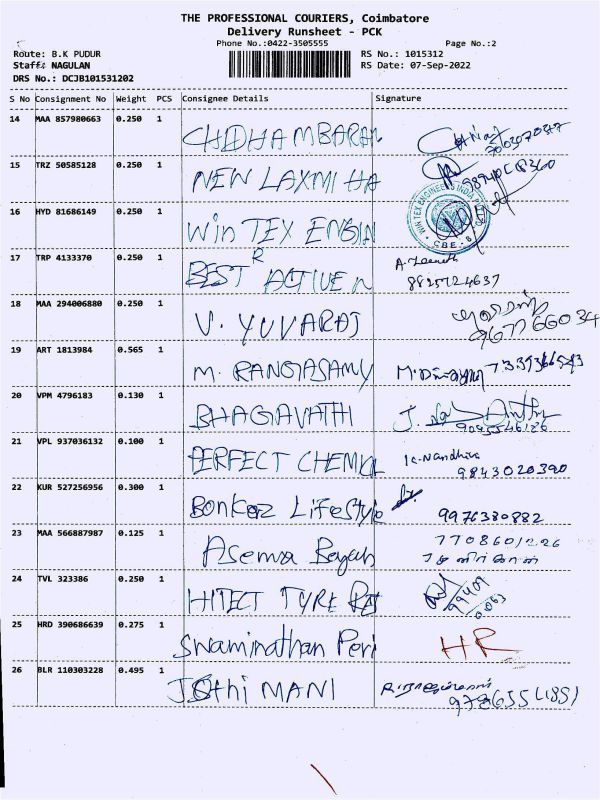 THE PROFESSIONAL COURIERS, Coimbatore
Delivery Runsheet - PCK
Phone No.:0422-3505555 Page No.:2
Route: B.K PUDUR RS No.: 1015312
Staff: NAGULAN RS Date: 07-Sep-2022
DRS No.: DCJB101531202
S No Consignment No Weight PCS Consignee Details Signature
14 MAA 857980663 0.250 1 CHDHAMBARAN
15 TRZ 50585128 0.250 1 NEW LAXMI HA
16 HYD 81686149 0.250 1 Win TEX ENGIN
17 TRP 4133370 0.250 1 BEST ACTIVE 8825724637
18 MAA 294006880 0.250 1 V. YUVARAJ 9677766034
19 ART 1813984 0.565 1 M. RANGASAMY
20 VPM 4796183 0.130 1 BHAGAVATHI
21 VPL 937036132 0.100 1 PERFECT CHEMICAL K-Nandhini 9843020390
22 KUR 527256956 0.300 1 Bonkaz LifeStyle 9976380882
23 MAA 566887987 0.125 1 Asema 7708601226
24 TVL 323386 0.250 1 HITECT TYRE
25 HRD 390686639 0.275 1 Swaminathan Peri HR
26 BLR 110303228 0.495 1 Jothi MANI